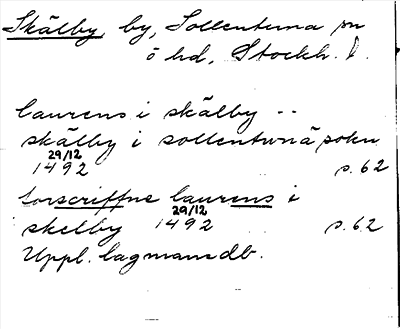 Skälby, by, Sollentuna sn
ö hd, Stockh. l.
laurens i skälby --
skälby i sollentunä sokn
29/12
1492 s. 62
forscriffne laurens i
29/12
skelby 1492 s. 62
Uppl. lagmansdb.